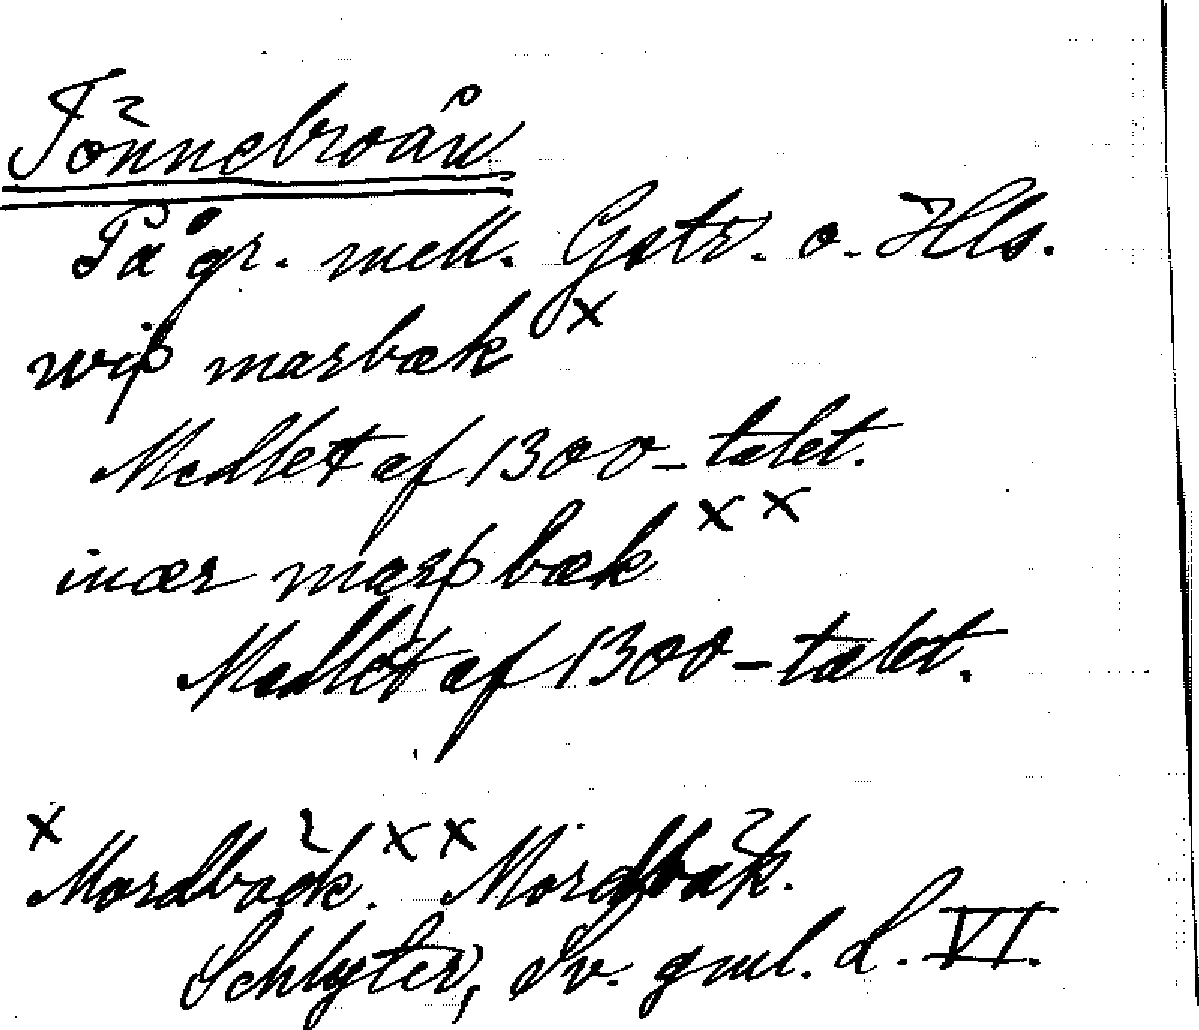 Tönnebroån
På gr. mell. Gstr. o. Hls.
wiþ marbæk x
Medlet af 1300-talet.
inær marþ bæk x x
Medlet af 1300-talet.
x Mordbäck. x x Mordbäk.
Schlyter, Sv. gml. L. VI.